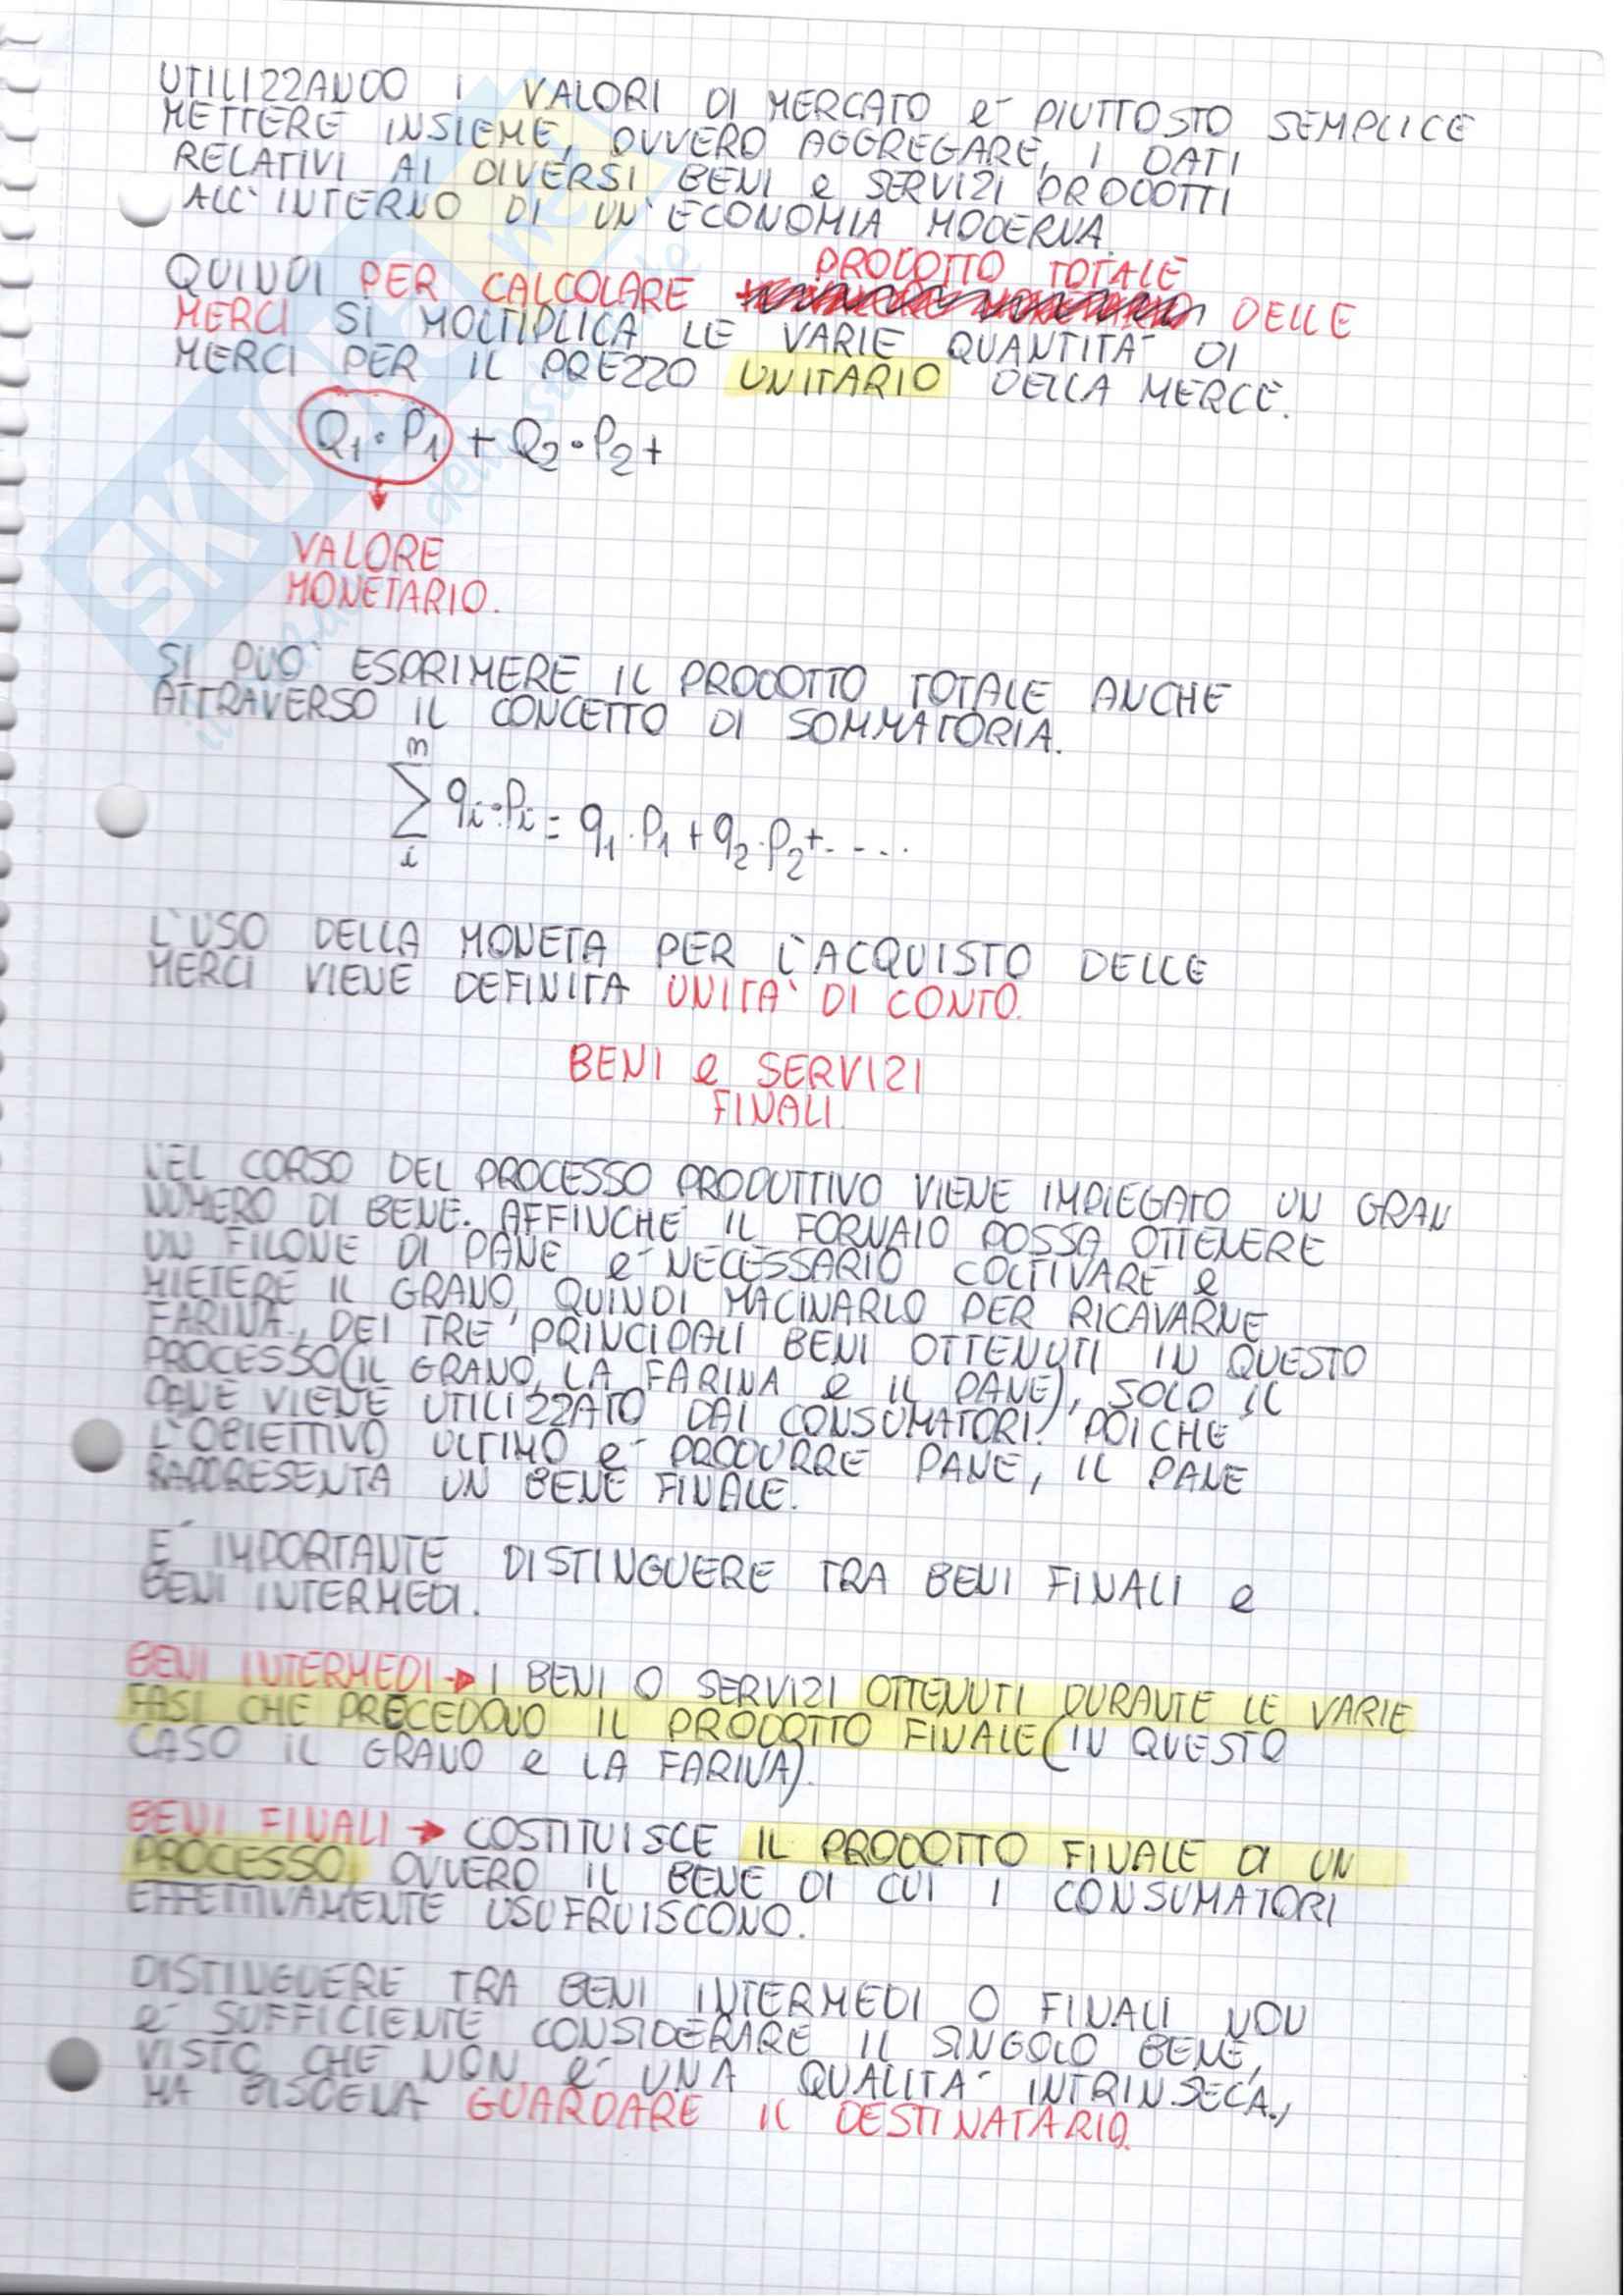 UTILIZZANDO I VALORI DI MERCATO e' PIUTTOSTO SEMPLICE
METTERE INSIEME, OVVERO AGGREGARE, I DATI
RELATIVI AI DIVERSI BENI e SERVIZI PRODOTTI
ALL'INTERNO DI UN'ECONOMIA MODERNA.
PRODOTTO TOTALE
QUINDI PER CALCOLARE DELLE
MERCI SI MOLTIPLICA LE VARIE QUANTITA' DI
MERCI PER IL PREZZO UNITARIO DELLA MERCE.
Q1·P1 + Q2·P2+
VALORE
MONETARIO.
SI PUO' ESPRIMERE IL PRODOTTO TOTALE ANCHE
ATTRAVERSO IL CONCETTO DI SOMMATORIA.
∑ qi·Pi = q1·P1 + q2·P2+....
i
L'USO DELLA MONETA PER L'ACQUISTO DELLE
MERCI VIENE DEFINITA UNITA' DI CONTO.
BENI e SERVIZI
FINALI.
NEL CORSO DEL PROCESSO PRODUTTIVO VIENE IMPIEGATO UN GRAN
NUMERO DI BENE. AFFINCHE' IL FORNAIO POSSA OTTENERE
UN FILONE DI PANE e' NECESSARIO COLTIVARE e
MIETERE IL GRANO, QUINDI MACINARLO PER RICAVARNE
FARINA., DEI TRE PRINCIPALI BENI OTTENUTI IN QUESTO
PROCESSO (IL GRANO, LA FARINA e IL PANE), SOLO IL
PANE VIENE UTILIZZATO DAI CONSUMATORI. POICHE'
L'OBIETTIVO ULTIMO e' PRODURRE PANE, IL PANE
RAPPRESENTA UN BENE FINALE.
E' IMPORTANTE DISTINGUERE TRA BENI FINALI e
BENI INTERMEDI.
BENI INTERMEDI → I BENI O SERVIZI OTTENUTI DURANTE LE VARIE
FASI CHE PRECEDONO IL PRODOTTO FINALE (IN QUESTO
CASO IL GRANO e LA FARINA).
BENI FINALI → COSTITUISCE IL PRODOTTO FINALE DI UN
PROCESSO, OVVERO IL BENE DI CUI I CONSUMATORI
EFFETTIVAMENTE USUFRUISCONO.
DISTINGUERE TRA BENI INTERMEDI O FINALI NON
e' SUFFICIENTE CONSIDERARE IL SINGOLO BENE,
VISTO CHE NON e' UNA QUALITA' INTRINSECA.,
MA BISOGNA GUARDARE IL DESTINATARIO.
SKUOLA.net